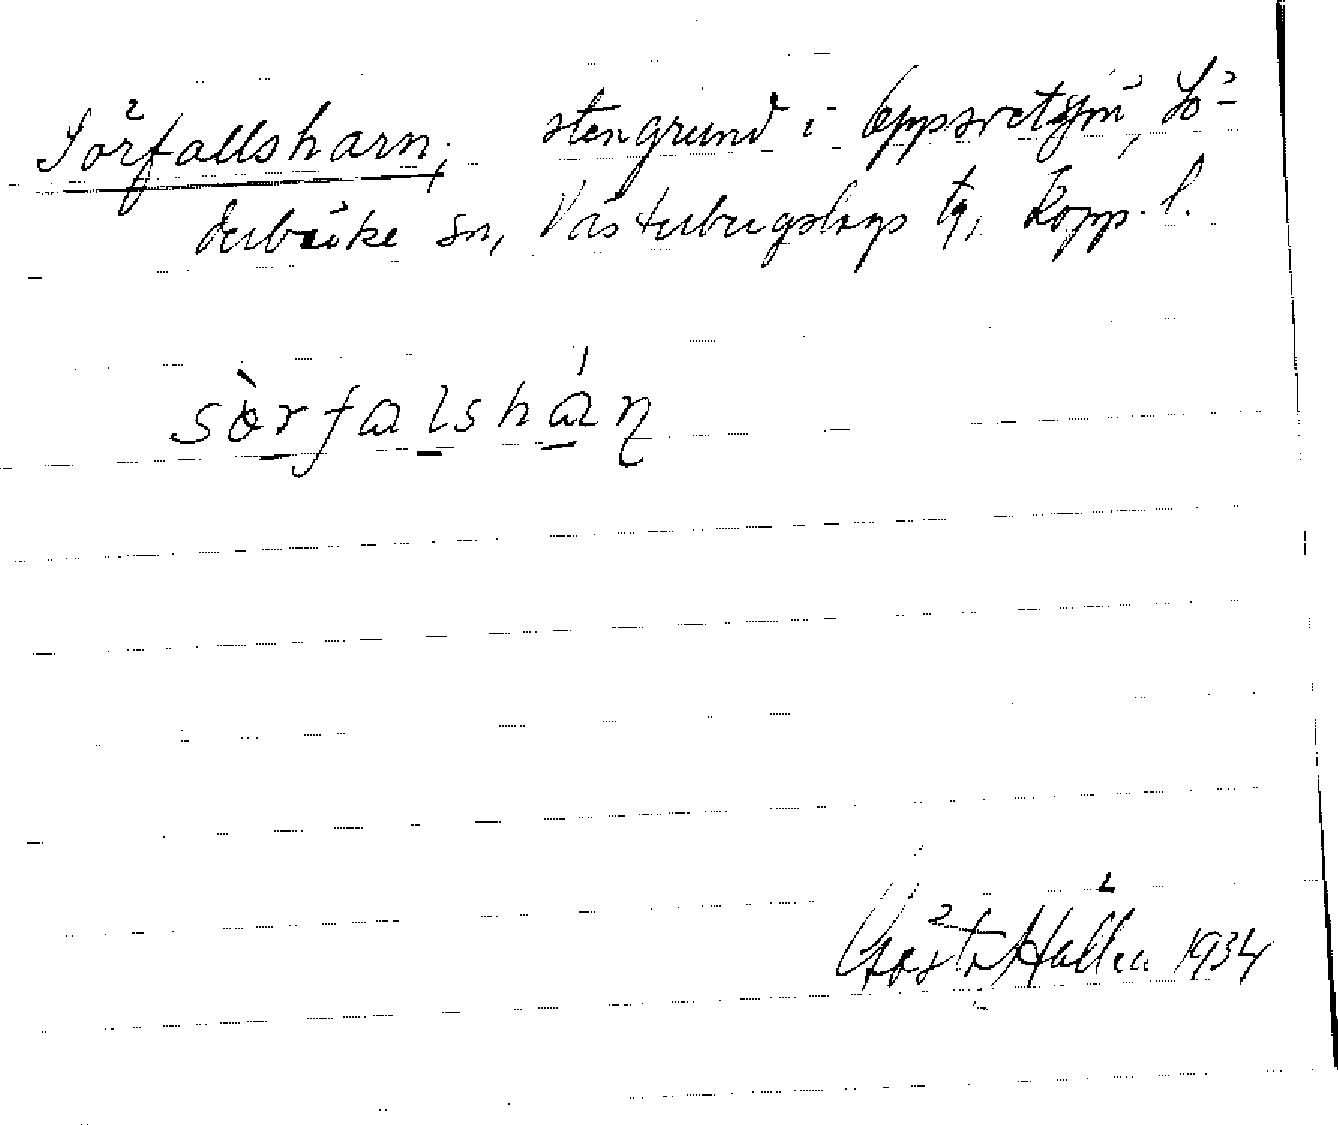 Sörfallsharn, stengrund i Oppsvetsjön, Sö-
derbärke sn, Västerbergslags tg, Kopp. l.
sòrfalshán
Gösta Hallén 1934